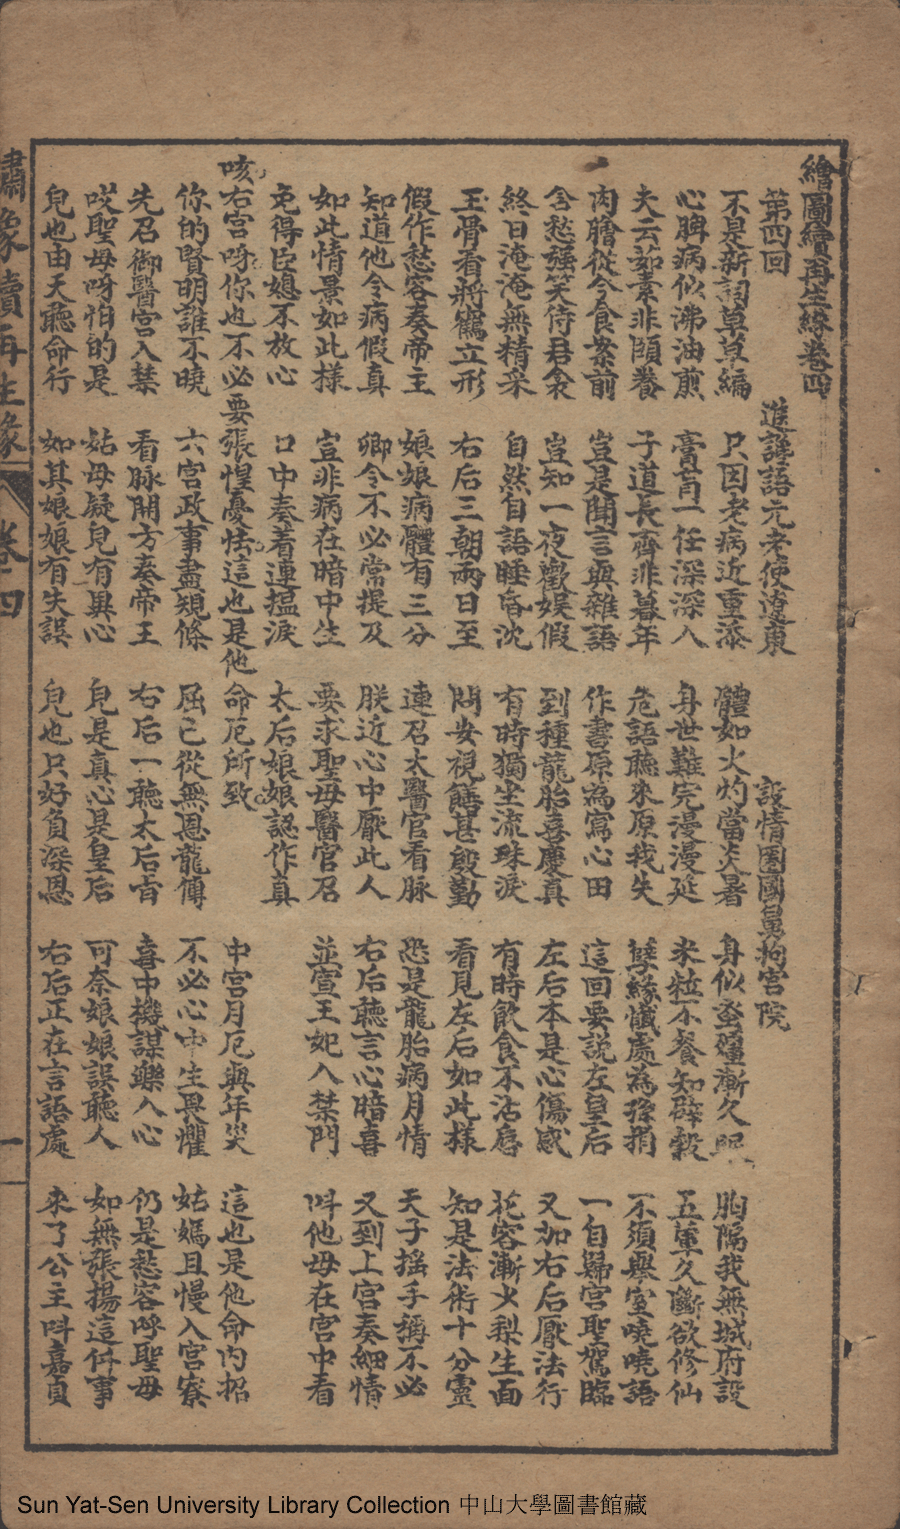 繪圖續再生緣卷四
第四回 進讒語元老使遼東 設情圈國舅拘宮院
不是新詞草草編 只因老病近重添 體如火灼當炎暑 身似蚕殭漸久眠 胸隔我無城府設
心脾病似沸油煎 膏肓一任深深入 身世難完漫漫延 米粒不餐知辟穀 五葷久斷欲修仙
夫云茹素非頤養 子道長齋非暮年 危語聽來原我失 孽緣懺處為孫捐 不須舉室嘵嘵語
肉膾從今食案前 豈是閒言與雜語 作書原為寫心田 這回要說左皇后 一自歸宮聖駕臨
含愁強笑侍君衾 豈知一夜歡娛假 到種龍胎喜慶真 左后本是心傷感 又加右后厭法行
終日淹淹無精采 自然自語睡昏沈 有時獨坐流珠淚 有時飲食不沾唇 花容漸少梨生面
玉骨看將鶴立形 右后三朝兩日至 問安視膳甚殷勤 看見左后如此樣 知是法術十分靈
假作愁容奏帝主 娘娘病體有三分 連召太醫官看脉 恐是龍胎病月情 天子搖手稱不必
知道他今病假真 卿今不必常提及 朕近心中厭此人 右后聽言心暗喜 又到上宮奏細情
如此情景如此樣 豈非病在暗中生 要求聖母醫官召 並宣王妃入禁門 呌他母在宮中看
免得臣媳不放心 口中奏着連揾淚 太后娘娘認作真
咳右宮呀你也不必要張惶憂怯這也是他命厄所致 中宮月厄與年災 這也是他命内招
你的賢明誰不曉 六宮政事盡規條 屈己從無恩寵傳 不必心中生畏懼 姑媽且慢入宮寮
先召御醫宮入禁 看脉開方奏帝王 右后一聽太后旨 喜中機謀樂入心 仍是愁容呼聖母
哎聖母呀怕的是 姑母疑兒有異心 兒是真心是皇后 可奈娘娘誤聽人 如無張揚這件事
兒也由天聽命行 如其娘娘有失誤 兒也只好負深恩 右后正在言語處 來了公主呌嘉貞
繡像續再生緣 卷四 一
Sun Yat-Sen University Library Collection 中山大學圖書館藏